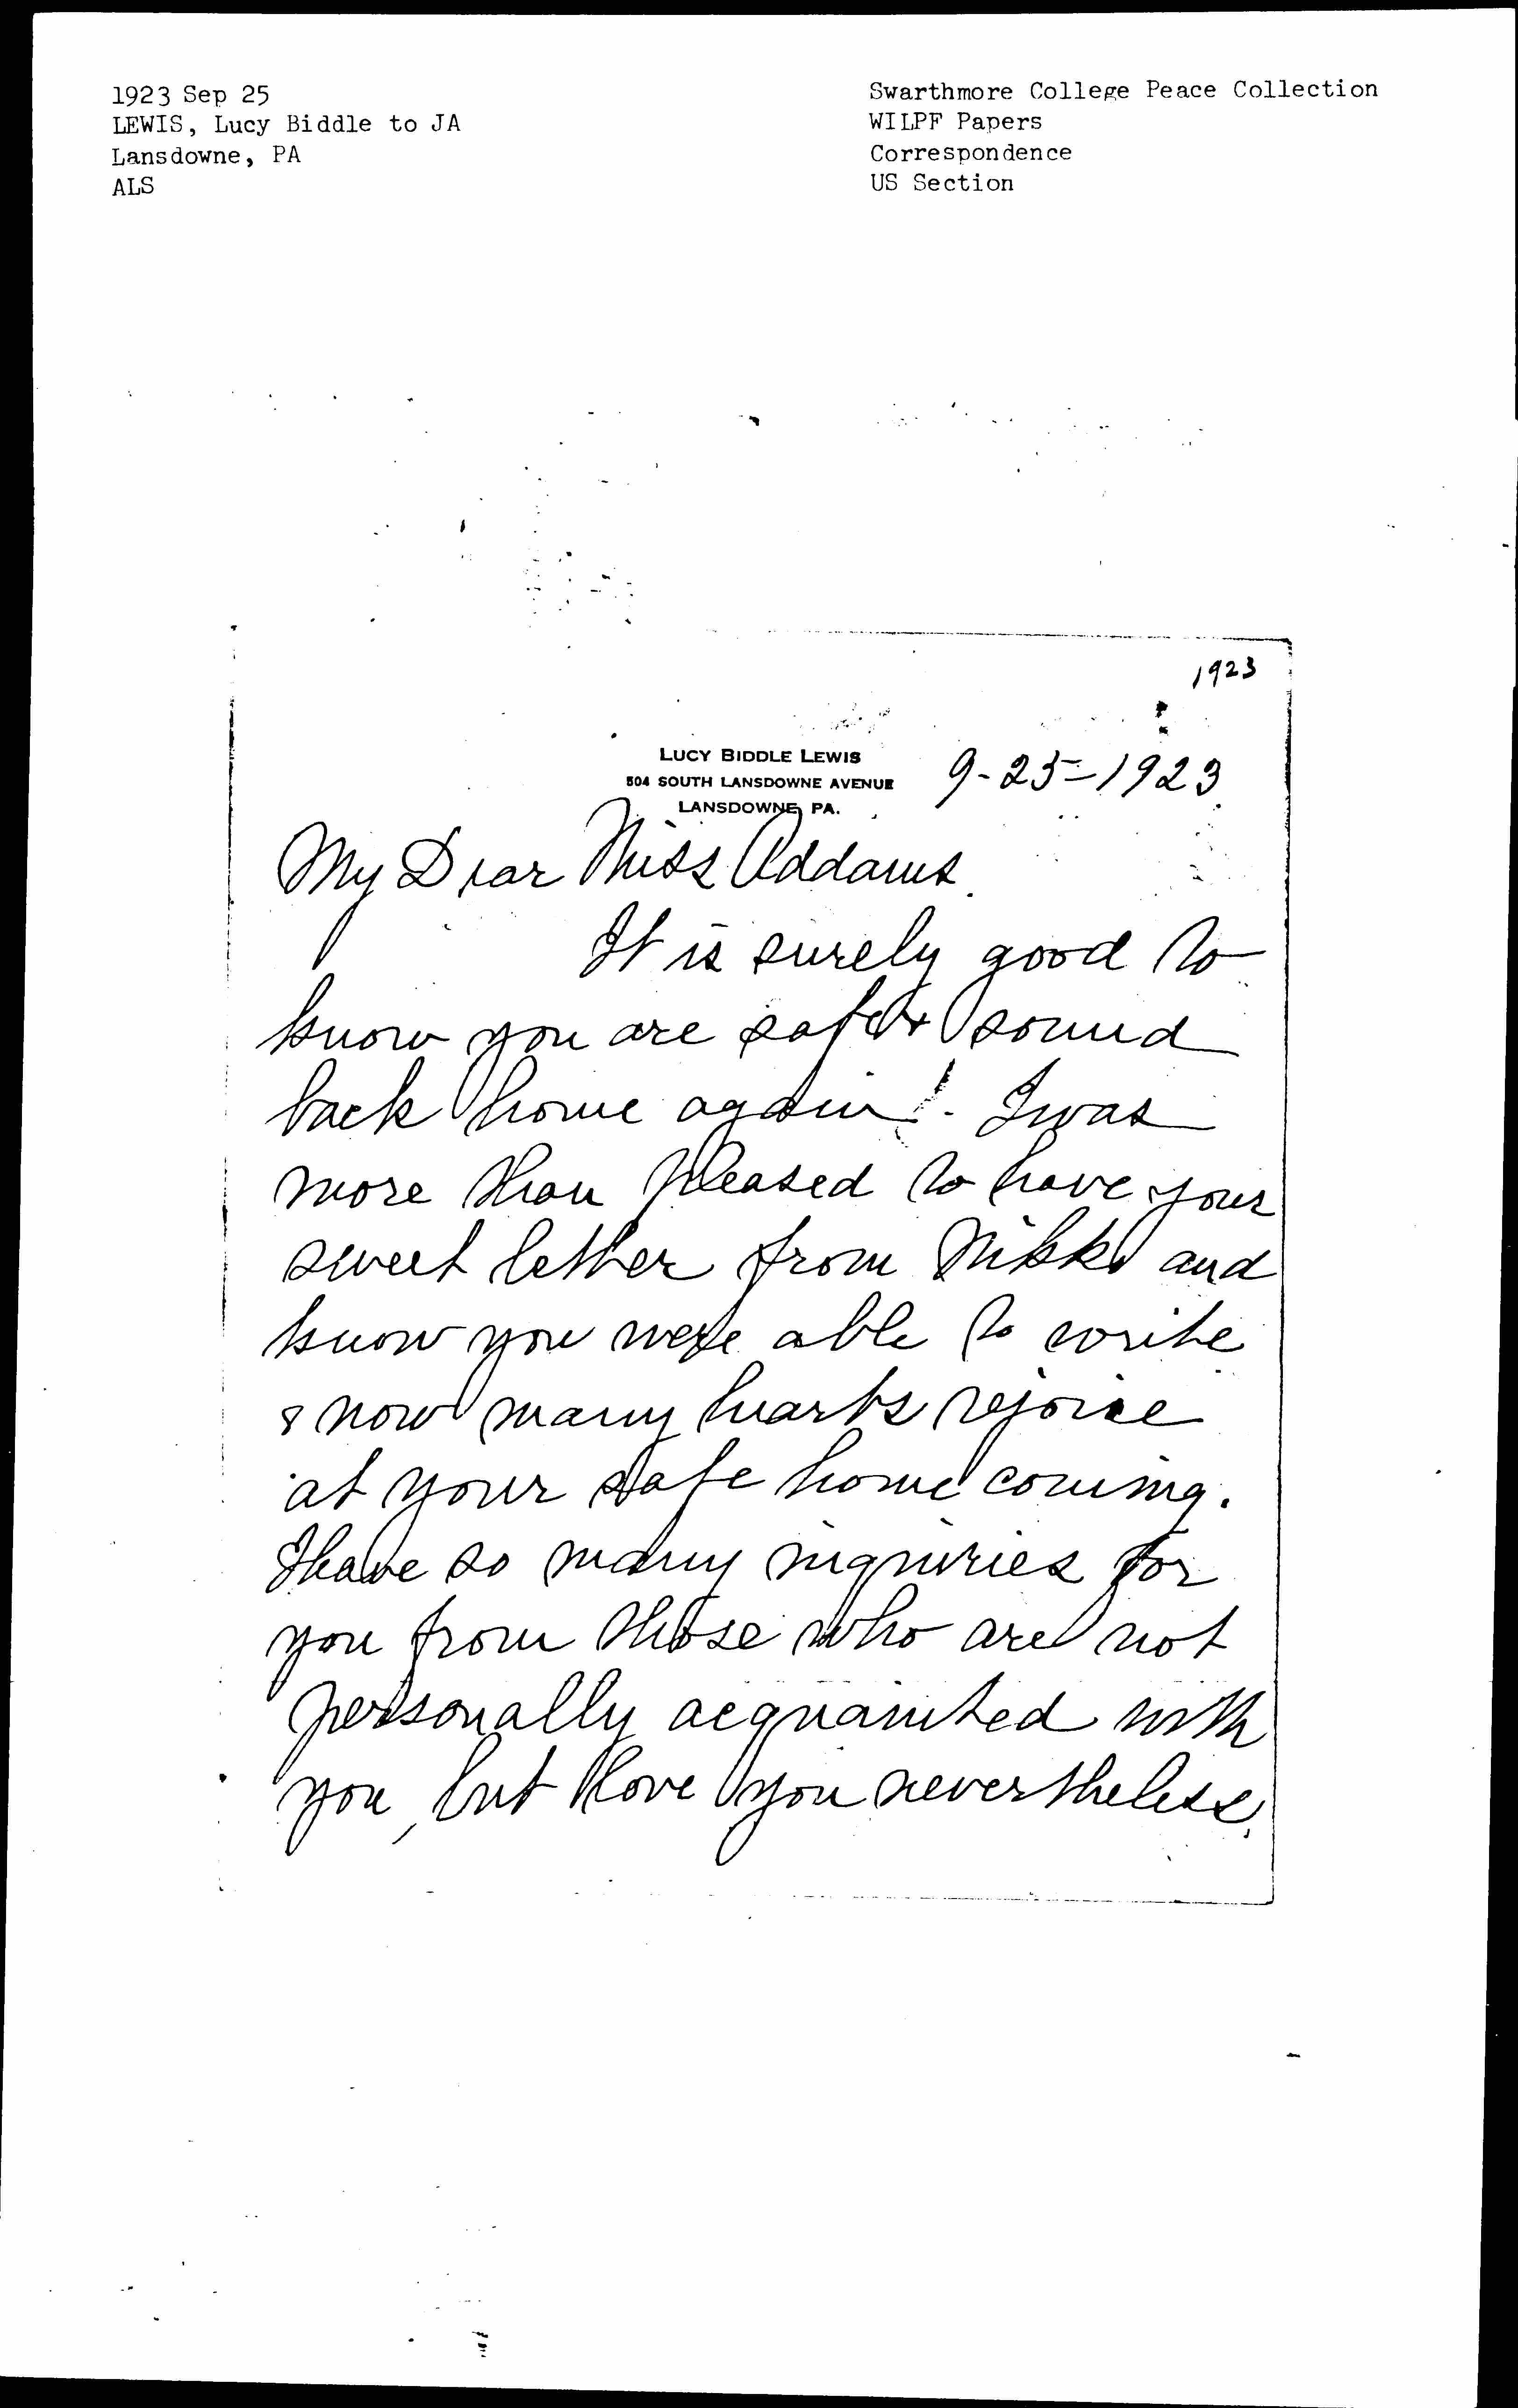 1923 Sep 25
LEWIS, Lucy Biddle to JA
Lansdowne, PA
ALS
Swarthmore College Peace Collection
WILPF Papers
Correspondence
US Section
1923
LUCY BIDDLE LEWIS
504 SOUTH LANSDOWNE AVENUE
LANSDOWNE, PA.
9-25-1923
My Dear Miss Addams.
It is surely good to
know you are safe & sound
back home again!. I was
more than pleased to have your
sweet letter from Nikko and
know you were able to write
& now many hearts rejoice
at your safe home coming.
I have so many inquiries for
you from those who are not
personally acquainted with
you, but love you nevertheless,